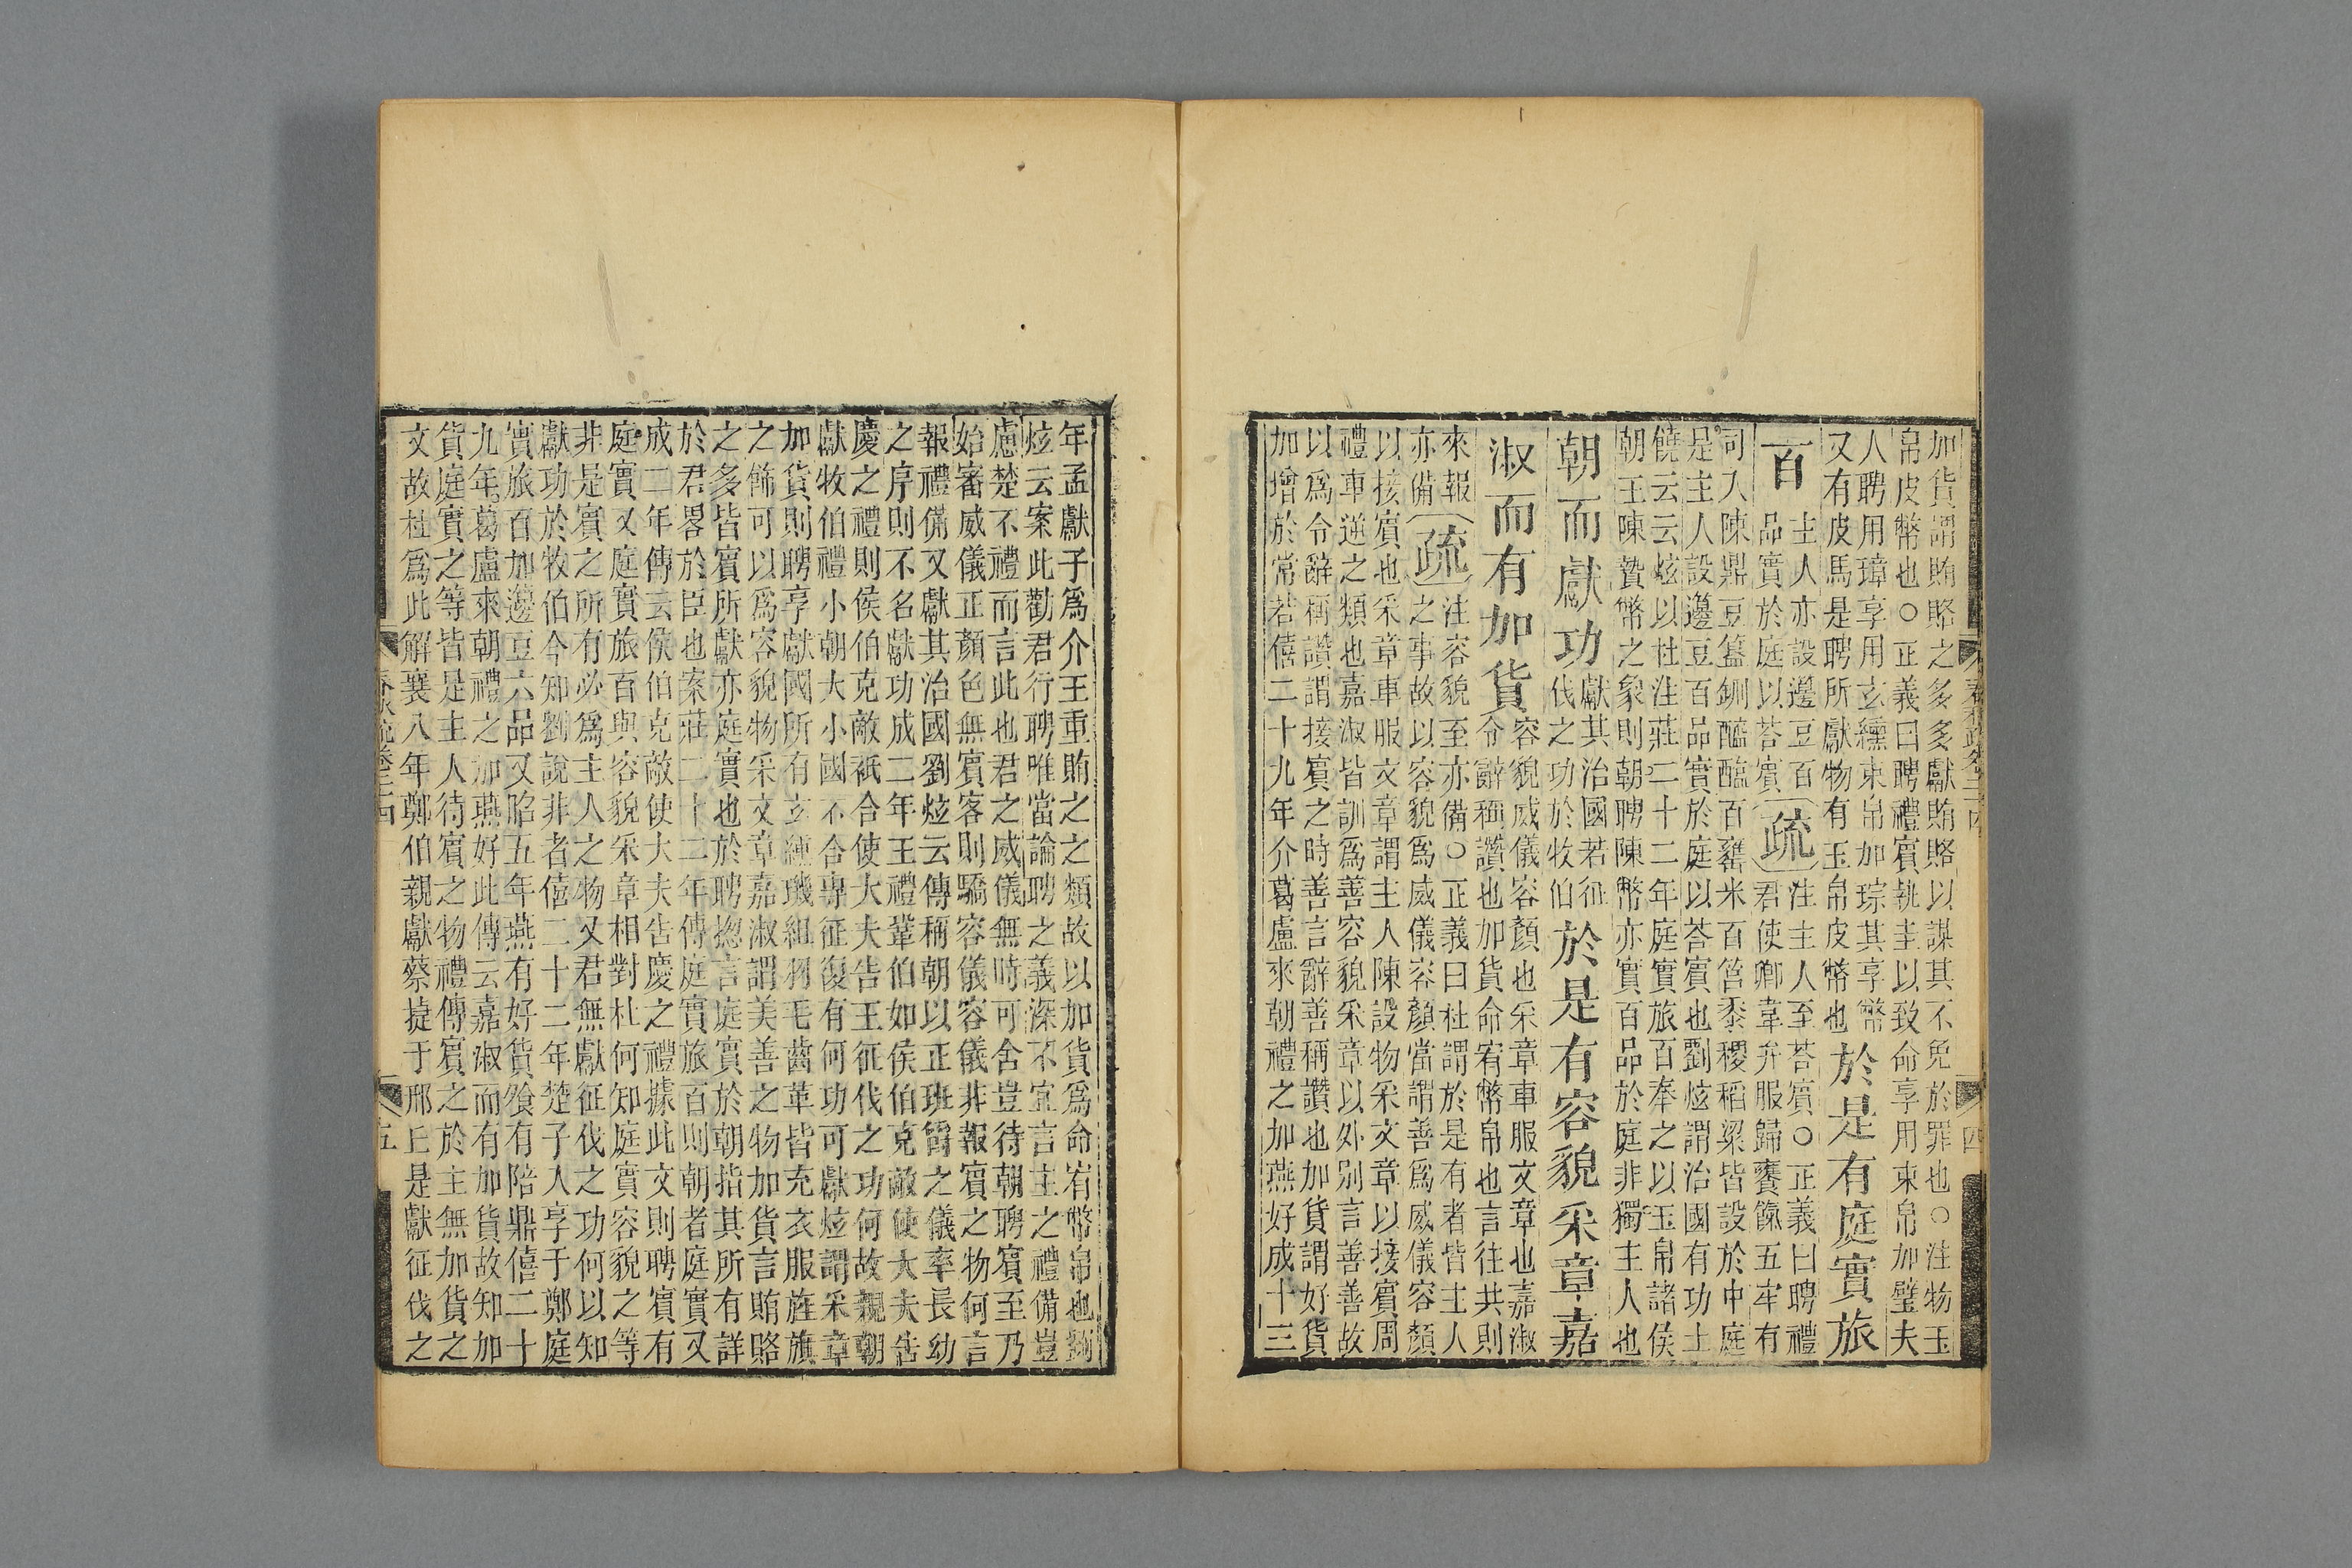 加貨謂賄賂之多多獻賄賂以謀其不免於罪也○注物玉
帛皮幣也○正義曰聘禮賓執圭以致命享用束帛加璧夫
人聘用璋享用玄纁束帛加琮其享幣
又有皮馬是聘所獻物有玉帛皮幣也
於是有庭實旅
百
主人亦設籩豆百
品實於庭以荅賓
疏
注主人至荅賓○正義曰聘禮
君使卿韋弁服歸饔餼五牢有
司入陳鼎豆簋鉶醯醢百罋米百筥黍稷稻粱皆設於中庭
是主人設籩豆百品實於庭以荅賓也劉炫謂治國有功土
饒云云炫以杜注莊二十二年庭實旅百奉之以玉帛諸侯
朝王陳贄幣之象則朝聘陳幣亦實百品於庭非獨主人也
朝而獻功
獻其治國若征
伐之功於牧伯
於是有容貌采章嘉
淑而有加貨
容貌威儀容顏也采章車服文章也嘉淑
令辭稱讚也加貨命宥幣帛也言往共則
來報
亦備
疏
注容貌至亦備○正義曰杜謂於是有者皆主人
之事故以容貌爲威儀容顏當謂善爲威儀容顏
以接賓也采章車服文章謂主人陳設物采文章以接賓周
禮車逆之類也嘉淑皆訓爲善容貌采章以外別言善善故
以爲令辭稱讚謂接賓之時善言辭善稱讚也加貨謂好貨
加增於常若僖二十九年介葛盧來朝禮之加燕好成十三
年孟獻子爲介王重賄之之類故以加貨爲命宥幣帛也劉
炫云案此勸君行聘唯當論聘之義深不宜言主之禮備豈
慮楚不禮而言此也君之威儀無時可舍豈待朝聘賓至乃
始審威儀正顏色無賓客則驕容儀容儀非報賓之物何言
報禮備又獻其治國劉炫云傳稱朝以正班爵之儀率長幼
之序則不名獻功成二年王禮鞏伯如侯伯克敵使大夫告
慶之禮則侯伯克敵祇合使大夫告王征伐之功何故親朝
獻牧伯禮小朝大小國不合專征復有何功可獻炫謂采章
加貨則聘享獻國所有玄纁璣組羽毛齒革皆充衣服旌旗
之飾可以爲容貌物采文章嘉淑謂美善之物加貨言賄賂
之多皆賓所獻亦庭實也於聘揔言庭實於朝指其所有詳
於君畧於臣也案莊二十二年傳庭實旅百則朝者庭實又
成二年傳云侯伯克敵使大夫告慶之禮據此文則聘賓有
庭實又庭實旅百與容貌采章相對杜何知庭實容貌之等
非是賓之所有必爲主人之物又君無獻征伐之功何以知
獻功於牧伯今知劉說非者僖二十二年楚子入享于鄭庭
實旅百加籩豆六品又昭五年燕有好貨飱有陪鼎僖二十
九年葛盧來朝禮之加燕好此傳云嘉淑而有加貨故知加
貨庭實之等皆是主人待賓之物禮傳賓之於主無加貨之
文故杜爲此解襄八年鄭伯親獻蔡捷于邢丘是獻征伐之